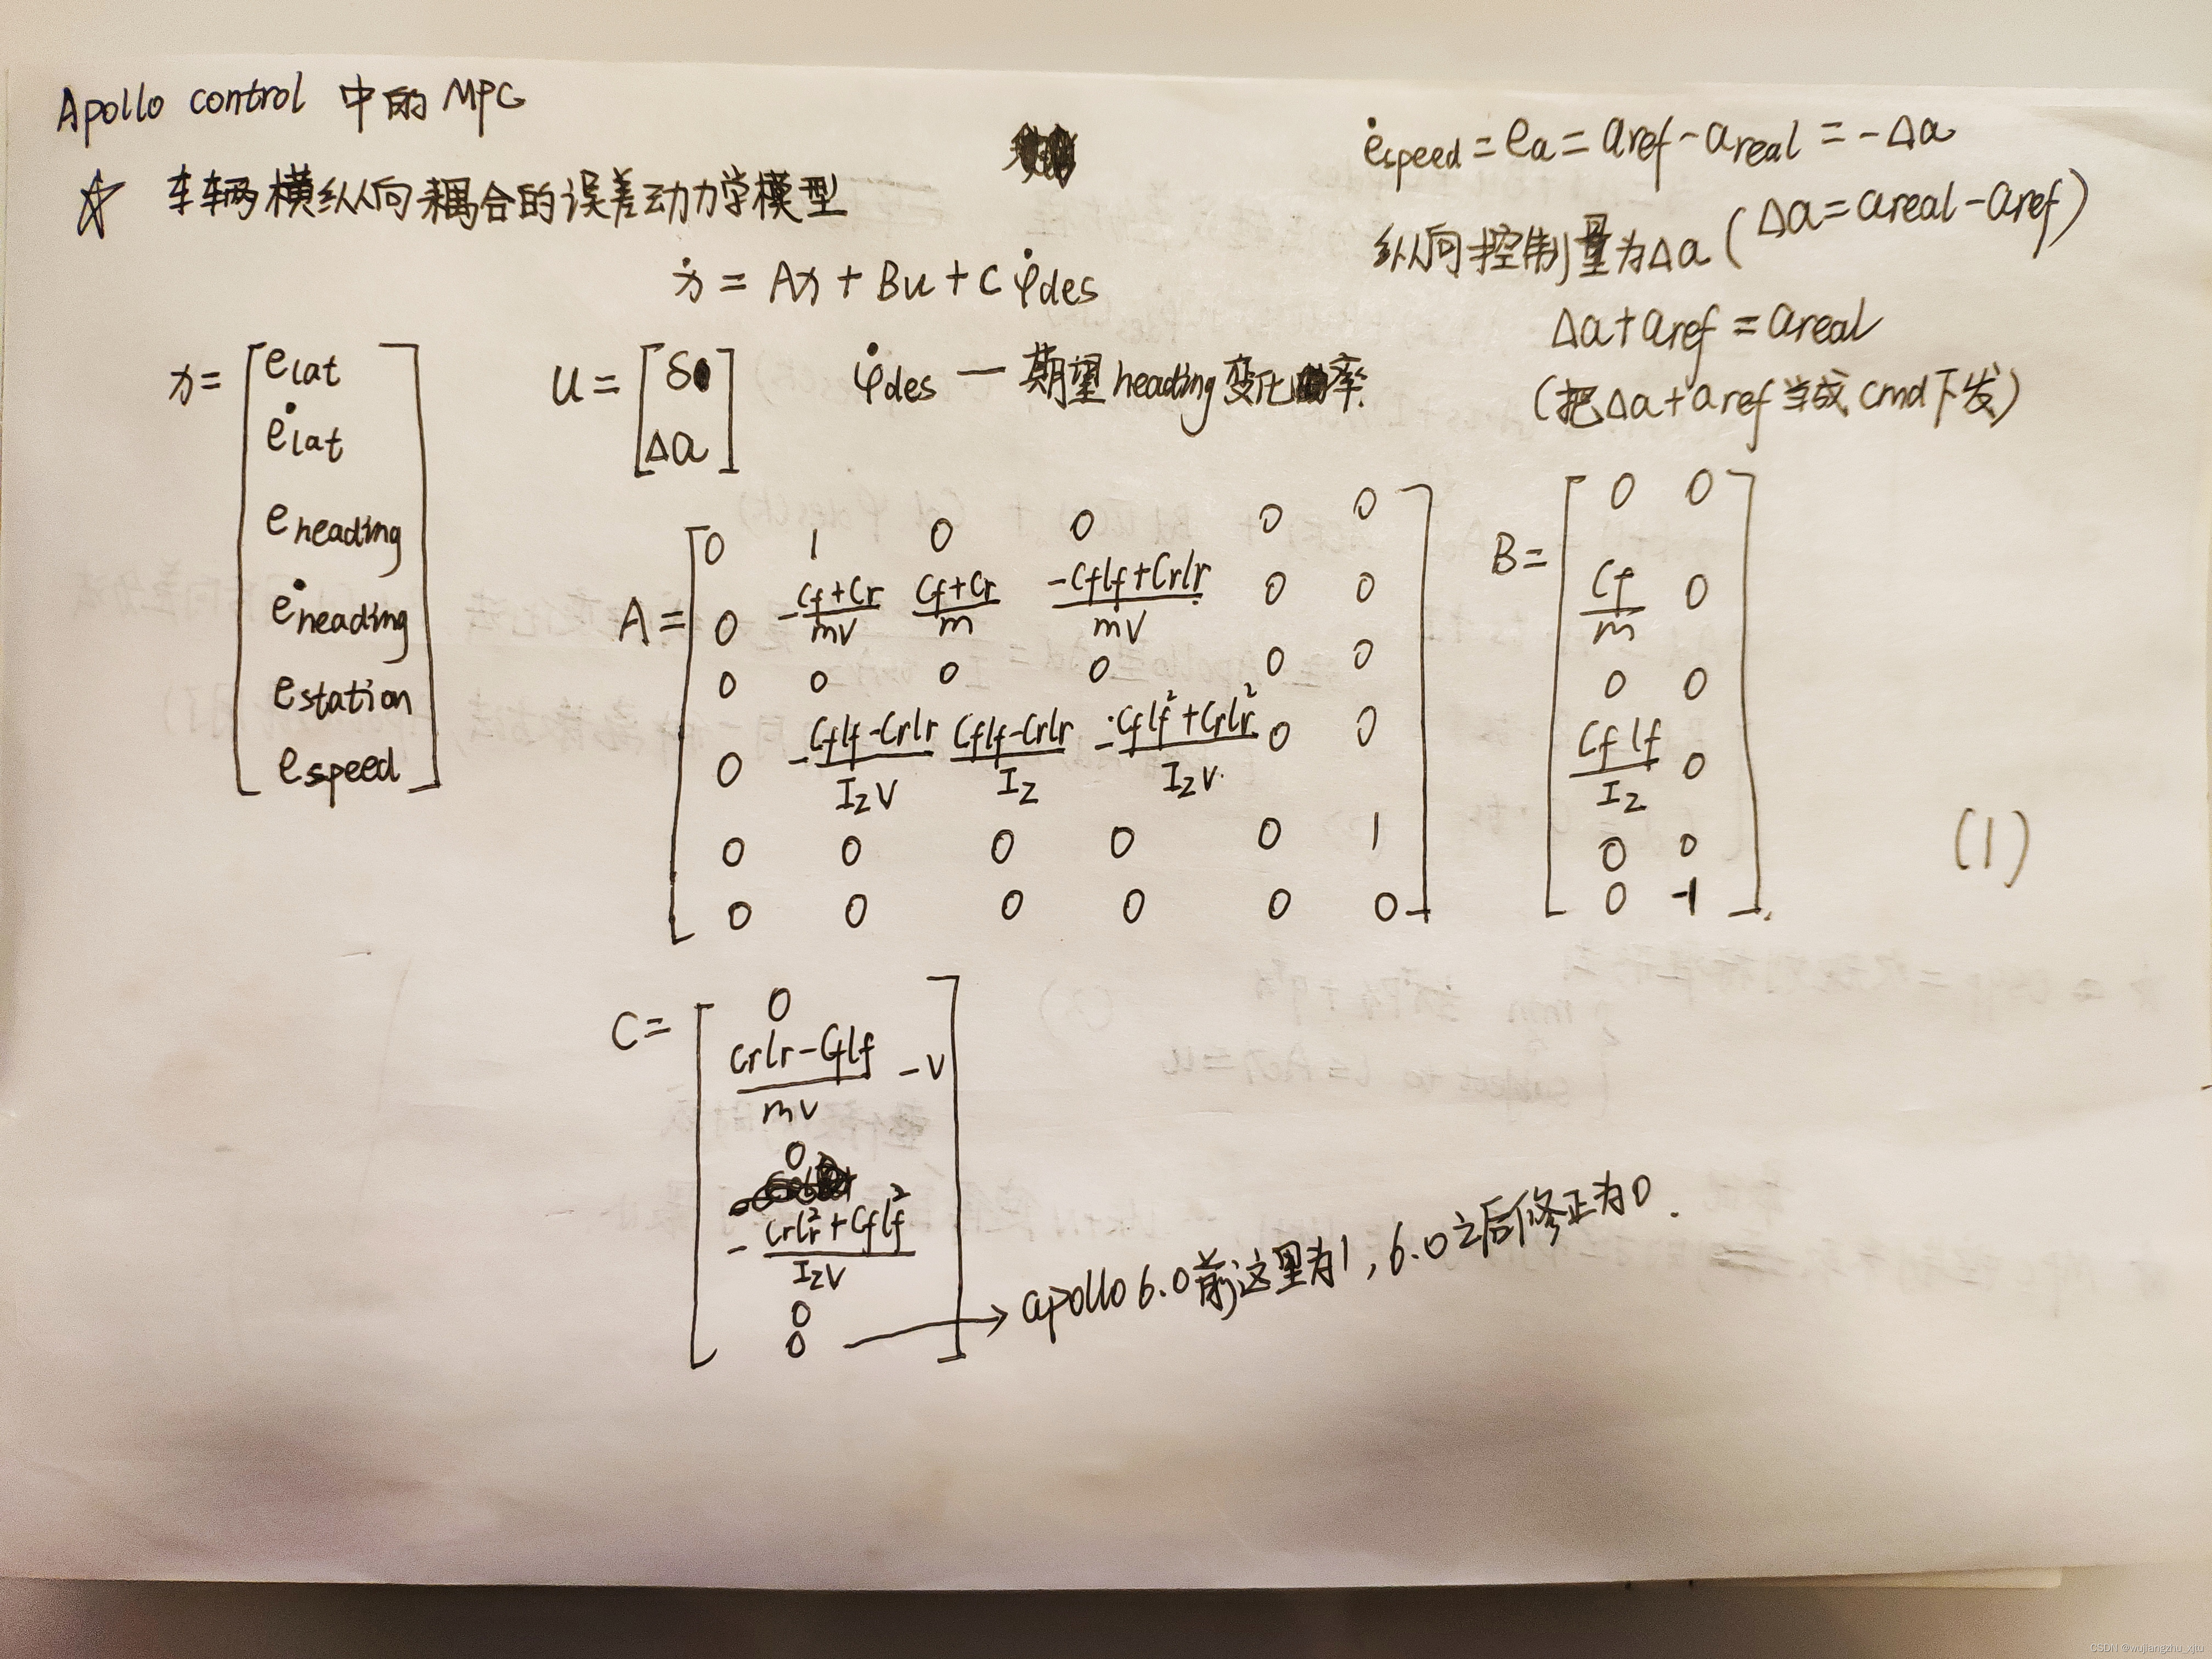 Apollo control 中的MPC
☆ 车辆横纵向耦合的误差动力学模型
ẋ = Ax + Bu + C φ̇des
ėspeed = ea = aref - areal = -Δa
纵向控制量为Δa (Δa = areal - aref)
Δa + aref = areal
(把Δa + aref 当成 cmd 下发)
x = [elat
ėlat
eheading
ėheading
estation
espeed]
u = [δ
Δa]
φ̇des — 期望heading变化率.
A = [0 1 0 0 0 0
0 -(Cf+Cr)/mV (Cf+Cr)/m (-Cflf+Crlr)/mV 0 0
0 0 0 0 0 0
0 -(Cflf-Crlr)/IzV (Cflf-Crlr)/Iz -(Cflf²+Crlr²)/IzV 0 0
0 0 0 0 0 1
0 0 0 0 0 0]
B = [0 0
Cf/m 0
0 0
Cflf/Iz 0
0 0
0 -1]
(1)
C = [0
(Crlr-Cflf)/mV - V
0
-(Crlr²+Cflf²)/IzV
0
0]
→ apollo 6.0前这里为1, 6.0之后修正为0.
CSDN @wujiangzhu_xjtu